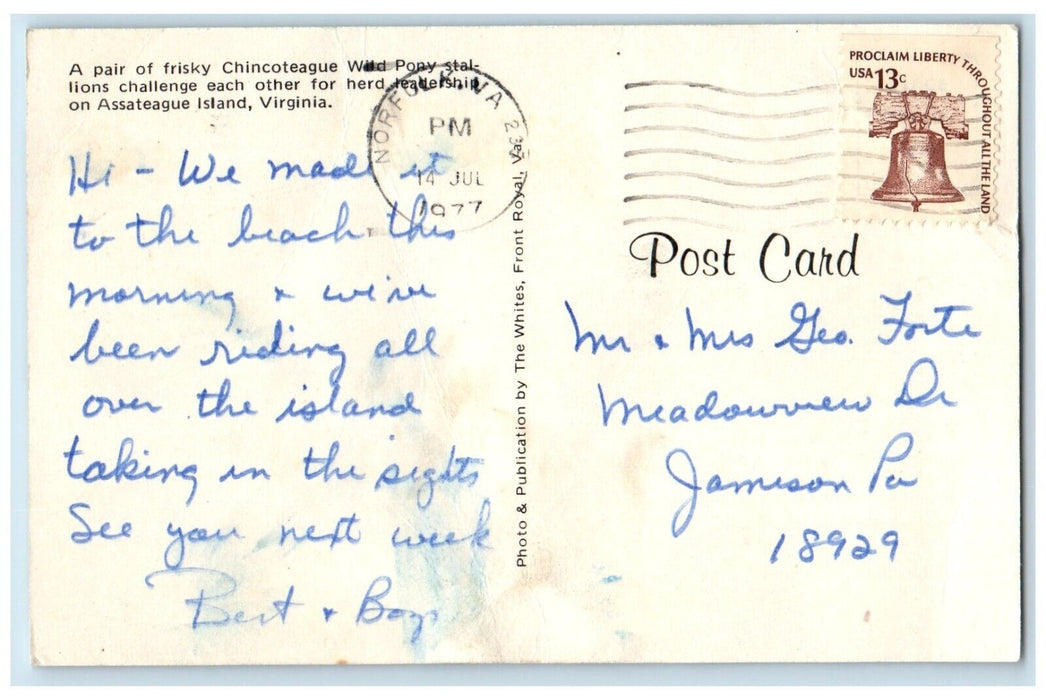 A pair of frisky Chincoteague Wild Pony stal-
lions challenge each other for herd leadership
on Assateague Island, Virginia.
NORFOLK, VA
PM
14 JUL
1977
PROCLAIM LIBERTY THROUGHOUT ALL THE LAND
USA 13c
Post Card
Hi - We made it
to the beach this
morning & we've
been riding all
over the island
taking in the sights
See you next week
Bert & Boys
Photo & Publication by The Whites, Front Royal, Va.
Mr & Mrs Geo. Forte
Meadowview Dr
Jamison Pa
18929